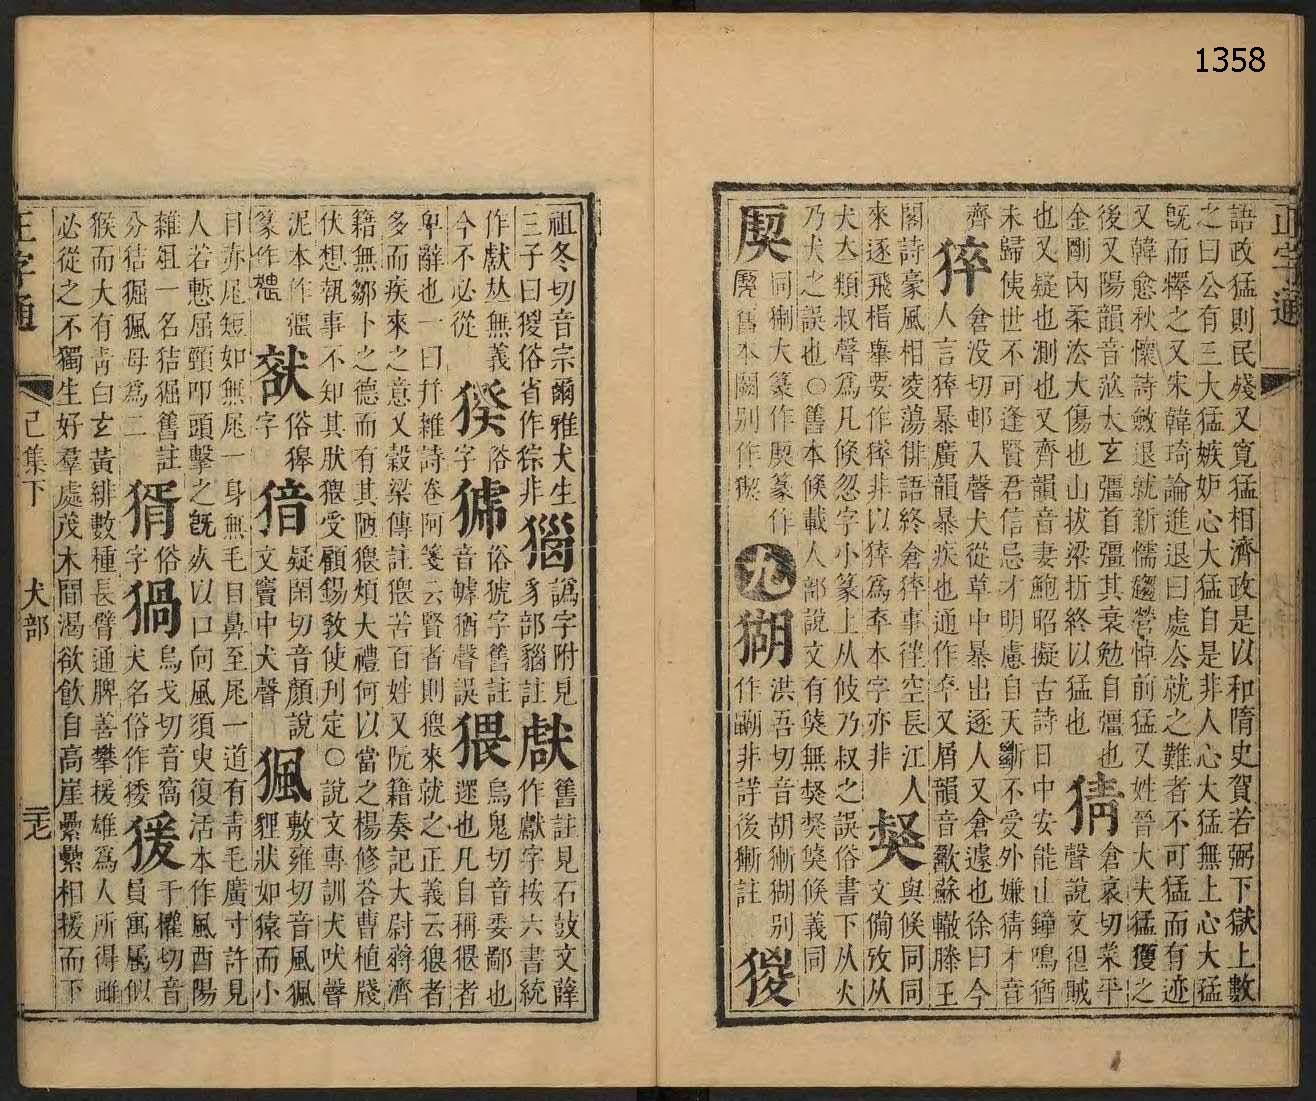 1358
正字通
語政猛則民殘又寬猛相濟政是以和隋史賀若弼下獄上數
之曰公有三大猛嫉妒心大猛自是非人心大猛無上心大猛
旣而釋之又宋韓琦論進退曰處公就之難者不可猛而有迹
又韓愈秋懷詩斂退就新懦趨營悼前猛又姓晉大夫猛獲之
後又陽韻音太玄彊首彊其衰勉自彊也
猜倉哀切菜平
金剛內柔大傷也山拔梁折終以猛也
聲說文恨賊
也又疑也測也又齊韻音妻鮑昭擬古詩日中安能止鐘鳴猶
未歸使世不可逢賢君信忌才明慮自天斷不受外嫌猜才音
齊
猝倉没切村入聲犬從草中暴出逐人又倉遽也徐曰今
人言猝暴廣韻暴疾也通作卒又屑韻音歠蘇轍滕王
閣詩豪風相凌蕩俳語終倉猝事往空長江人
來逐飛㮄舉要作猝非以猝爲本字亦非
猰與㑨同同
文備攷从
犬大類叔聲爲凡倏忽字小篆上从攸乃叔之誤俗書下从火
乃犬之誤也○舊本倏載人部說文有無倏義同
同猘大篆作篆作
舊本闕别作猰
九
猢洪吾切音胡猢别
作非詳後註
猣
祖冬切音宗爾雅犬生
三子曰猣俗省作猔非
猫譌字附見
豸部貓註
獻舊註見石鼓文薛
作獻字按六書統
作獻无無義
今不必從
猤俗
字
俗猇字舊註
音罅猶聲誤
猥烏鬼切音委鄙也
濫也凡自稱猥者
卑辭也一曰幷雜詩卷阿箋云賢者則猥來就之正義云猥者
多而疾來之意又穀梁傳註猥苦百姓又阮籍奏記大尉蔣濟
籍無鄒卜之德而有其陋猥煩大禮何以當之楊修荅曹植牋
伏想執事不知其肰猥受顧錫敎使刋定○說文專訓犬吠聲
泥本作
篆作
俗獋
字
猎疑閑切音顏說
文竇中犬聲
猦敷雍切音風猦
貍狀如猿而小
目赤尾短如無尾一身無毛目鼻至尾一道有靑毛廣寸許見
人若慙屈頸叩頭擊之旣死以口向風須臾復活本作風酉陽
雜俎一名狤𤟎舊註
分狤猦母爲二
猾俗
字
猧烏戈切音窩
犬名俗作矮
猨于權切音
員寓屬似
猴而大有靑白玄黃緋數種長臂通脾善攀援雄爲人所得雌
必從之不獨生好羣處茂木間渴欲飮自高崖纍纍相援而下
正字通
巳集下
犬部